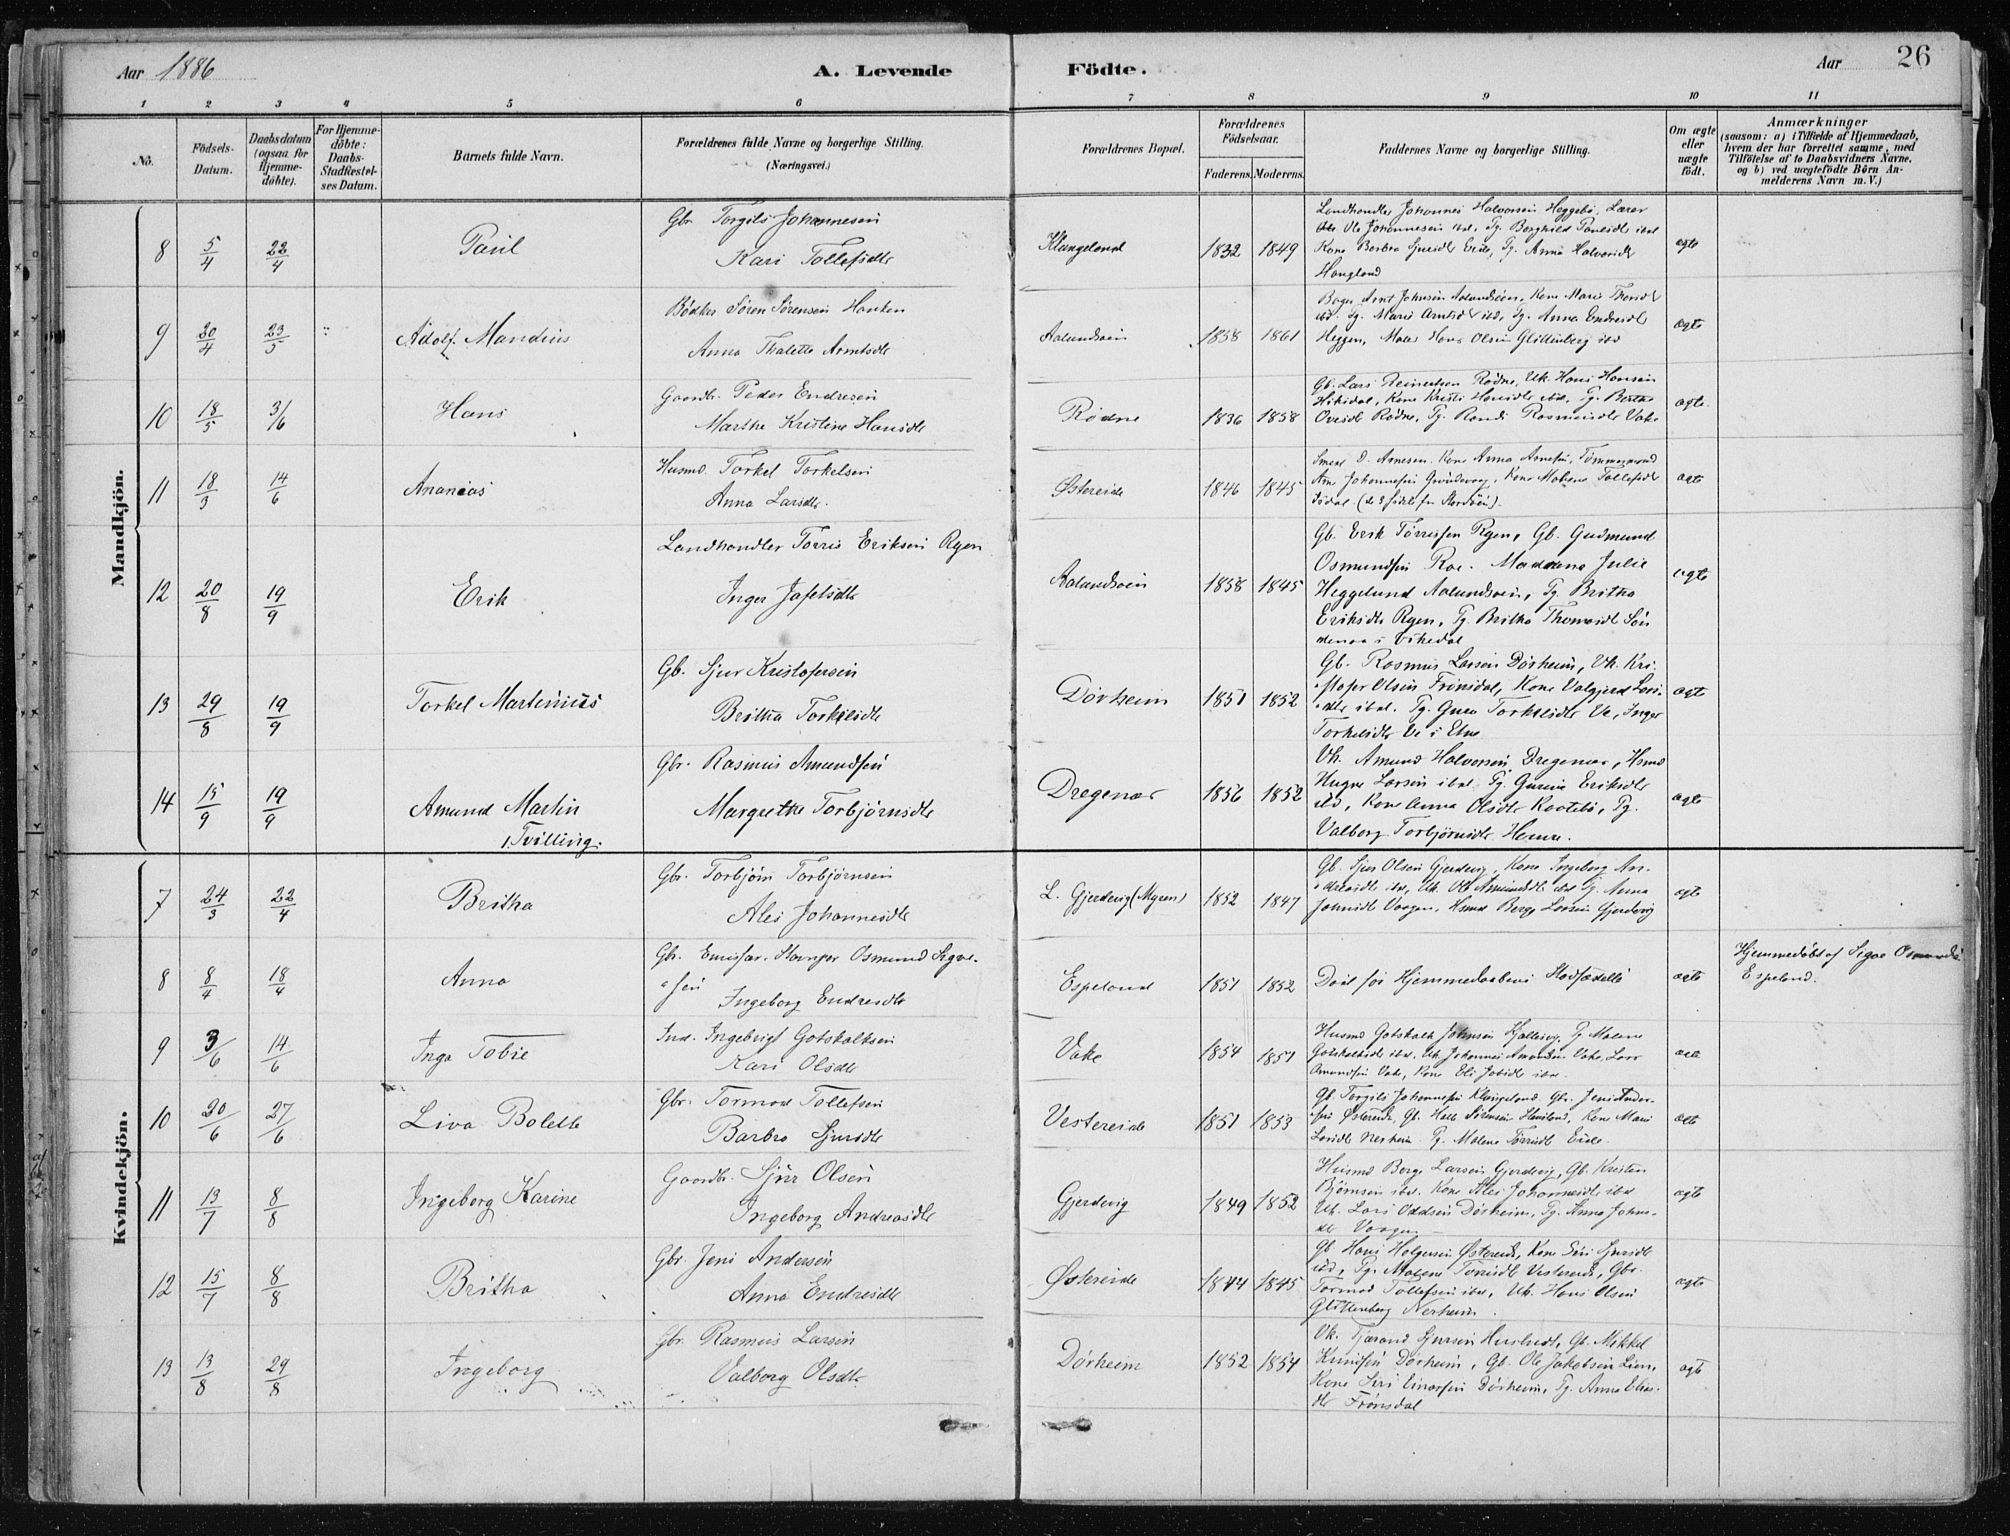 Aar 1886
A. Levende Födte.
Aar 26
1 2 3 4 5 6 7 8 9 10 11
No.
Födsels-Datum.
Daabsdatum (ogsaa for Hjemme-döbte).
For Hjemme-döbte: Daabs-Stadfæstel-ses Datum.
Barnets fulde Navn.
Forældrenes fulde Navne og borgerlige Stilling. (Næringsvei.)
Forældrenes Bopæl.
Forældrenes Födselsaar.
Faderens. Moderens.
Faddernes Navne og borgerlige Stilling.
Om ægte eller uægte födt.
Anmærkninger
(saasom: a) i Tilfælde af Hjemmedaab, hvem der har forrettet samme, med Tilföielse af to Daabsvidners Navne, og b) ved uægtefödte Börn An-melderens Navn m. V.)
Mandkjön.
8 5/4 22/4 Paul
Gbr. Torgils Johannesen
Kari Tollefsdtr
Klungeland 1832 1849
Landhandler Johannes Halvorsen Heggebø, Lærer
Ole Johannesen ibd, Pg. Borghild Paulsdtr ibd
Kone Barbro Sjursdtr Eide, Pg. Anna Halvorsdtr
Haugland
ægte
9 20/4 23/5 Adolf Mandius
Bødker Søren Sørensen Hanken
Anna Thalette Arntsdtr
Aalundsøen 1858 1861
Arnt Johnsen Aalundsøen, Kone Mari
ibd. Pg. Marie Arntsd ibd, Pg. Anna Endresdtr
Heggen, Maler Hans Olsen Glittenberg ibd
ægte
10 18/5 3/6 Hans
Gaardbr. Peder Endresen
Marthe Kristine Hansdtr
Rødne 1836 1858
Gb. Lars Reinertsen Rødne, Uk. Hans Hansen
Kone Kristi Hansdtr ibd, Pg. Berthe
Rødne, Pg. Randi Rasmusdtr Vake
ægte
11 18/3 14/6 Ananias
Husmd. Torkel Torkelsen
Anna Larsdtr.
Østereide 1846 1845
Smed O. Arnesen Kone Anna Tømmermand
Johannesen Kone Malene Tollefsdtr
ægte
12 20/8 19/9 Erik
Landhandler Torris Eriksen Rygen
Inger Jafetsdtr
Aalundsøen 1858 1845
Gb. Erik Tørrissen Rygen, Gb. Gudmund
Osmundsen Roe. Madame Julie
Heggelund Aalundsøen, Pg. Britha
Eriksdtr Rygen, Pg. Britha Thomasdtr Søn
denaa i Vikedal
ægte
13 29/8 19/9 Torkel Martinius
Gb. Sjur Kristofersen
Britha Torkilsdtr
Dørheim 1851 1852
Gb. Rasmus Larsen Dørheim, Uk. Kri-
stofer Olsen Frønsdal, Kone Valgjerd Lars-
dtr ibd. Pg. Guro Torkilsdtr Ve, Inger
Torkilsdtr Ve i Etne
ægte
14 15/9 19/9 Amund Martin
1. Tvilling.
Gbr. Rasmus Amundsen
Margrethe Torbjørnsdtr
Dregenæs 1856 1852
Uk. Amund Halvorsen Dregenæs, Hsmd
Larsen ibd. Pg. Gurine Eriksdtr
ibd, Kone Anna Olsdtr Pg.
Valborg Torbjørnsdtr
ægte
Kvindekjön.
7 24/3 22/4 Britha
Gbr. Torbjørn Torbjørnsen
Alei Johannesdtr
L. Gjerdevig (Myren) 1852 1847
Gb. Sjur Olsen Gjerdevig, Kone Ingeborg An-
dreasdtr ibd, Uk. Ole Amundsen ibd Pg. Anna
Johnsdtr Vaagen, Hsmd Berge Larsen Gjerdevig
ægte
8 8/4 18/4 Anna
Gbr. Emissær. Osmund Sigve-
sen
Ingeborg Endresdtr
Espeland 1851 1852
Død før Hjemmedaabens Stadfæstelse
ægte
Hjemmedøbt af Sigve Osmundsen
Espeland.
9 3/6 14/6 Inga Tobie
Ind. Ingebrigt Gotskalksen
Kari Olsdtr
Vake 1854 1851
Husmd Gotskalk Johnsen Pg. Malene
Gotskalksdtr ibd, Uk. Johannes Amundsen Vake, Lars
Amundsen Vake, Kone Eli ibd.
10 20/6 27/6 Liva Bolette
Gbr. Tormod Tollefsen
Barbro Sjursdtr
Vestereide 1851 1853
Gb. Torgils Johannesen Klungeland, Gbr. Jens Ander-
sen Østereide, Gb. Kone Mari
Larsdtr Pg. Malene Tørrisdtr Eide.
11 13/7 8/8 Ingeborg Karine
Gaardbr. Sjur Olsen
Ingeborg Andreasdtr
Gjerdevig 1849 1852
Husmd Berge Larsen Gjerdevig, Gb. Kristen
Bjørnsen ibd. Kone Alei Johannesdtr ibd
Uk. Lars Oddsen Dørheim, Pg. Anna Johns-
dtr Vaagen
ægte
12 15/7 8/8 Britha
Gbr. Jens Andersen
Anna Endresdtr
Østereide 1844 1845
Gb. Hans Holgersen Østereide, Kone Siri Sjursdtr
ibd, Pg. Malene Torrisdtr Vestereide, Gbr.
Tormod Tollefsen ibd, Uk. Hans Olsen
Glittenberg Nerheim.
ægte
13 13/8 29/8 Ingeborg
Gbr. Rasmus Larsen
Valborg Olsdtr
Dørheim 1852 1854
Uk. Tjerand Sjursen Gb. Mikkel
Knutsen Dørheim, Gb. Ole Jakobsen Lien,
Kone Siri Einarsen Dørheim, Pg. Anna Elias-
dtr Frønsdal
ægte